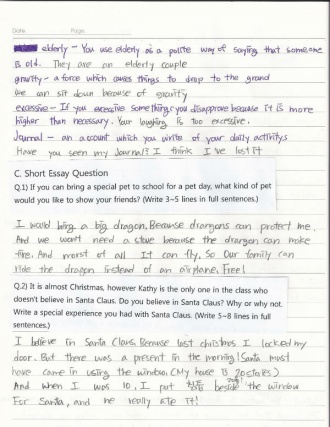 Date. Page.
elderly - You use elderly as a polite way of saying that someone
is old. They are an elderly couple
gravity - a force which causes things to drop to the grand
we can sit down because of gravity
excessive - If you execive something, you disapprove because it is more
higher than necessary. Your laughing is too excessive.
Journal - an account which you write of your daily activitys
Have you seen my Journal? I think I've lost it
C. Short Essay Question
Q.1) If you can bring a special pet to school for a pet day, what kind of pet
would you like to show your friends? (Write 3~5 lines in full sentences.)
I would bring a big dragon, Because drangons can protect me.
And we won't need a stove because the drangon can make
fire. And morst of all It can fly, So Our family can
ride the dragon instead of an airplane, Free!
Q.2) It is almost Christmas, however Kathy is the only one in the class who
doesn't believe in Santa Claus. Do you believe in Santa Claus? Why or why not.
Write a special experience you had with Santa Claus. (Write 5~8 lines in full
sentences.)
I believe in Santa Claus, Because last christmas I locked my
door. But there was a present in the morning! Santa must
have came in using the window. (My house is 20stories)
And when I was 10, I put beside the window
For Santa, and he really ate it!